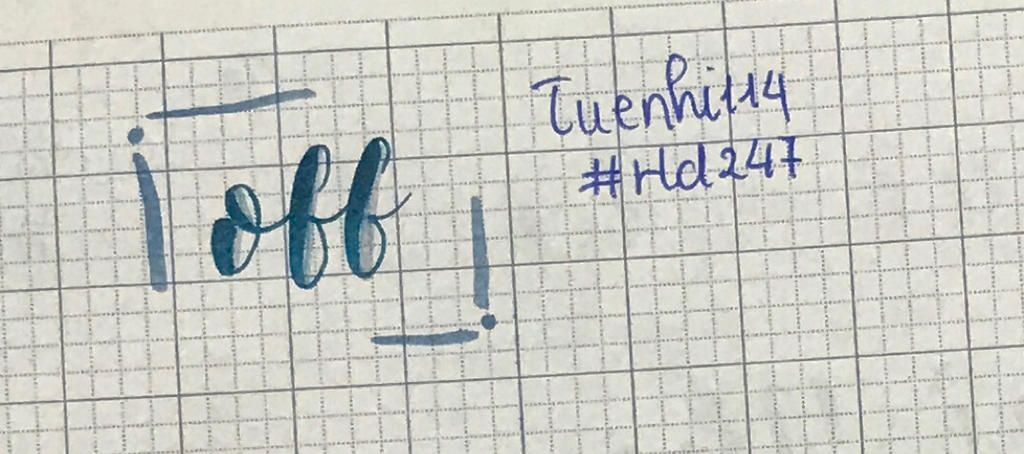 off
Tuenhi1114
#Hd247